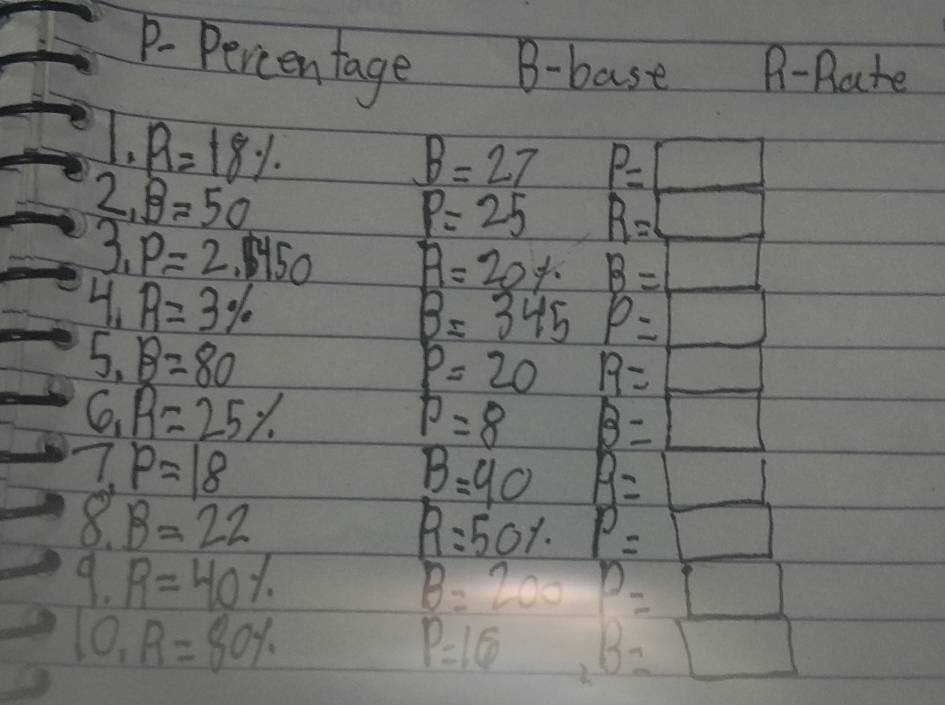 P- Percentage B-base R-Rate
1. R=18% B=27 P=
2. B=50 P=25 R=
3. P=2.450 R=20% B=
4. R=3% B=345 P=
5. B=80 P=20 R=
6. R=25% P=8 B=
7. P=18 B=90 R=
8. B=22 R=50% P=
9. R=40% B=200 P=
10. R=80% P=16 B=